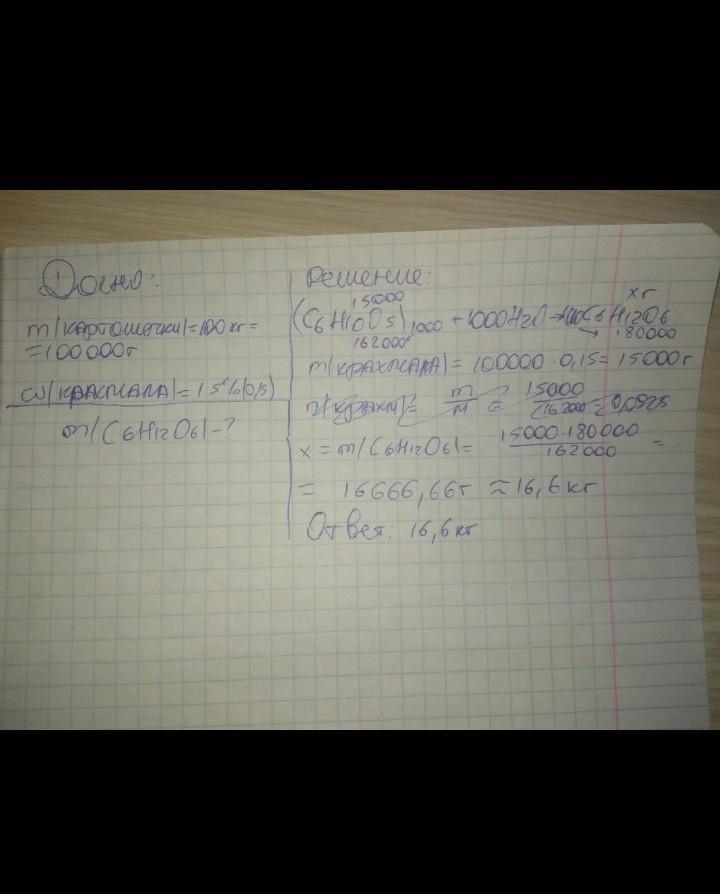 Дано:
m(картошечки)=100 кг=
=100000г
ω(крахмала)=15%(0,15)
m(C6H12O6)-?
Решение:
15000 xг
(C6H10O5)1000 + 1000H2O → 1000C6H12O6
162000 180000
m(крахмала)= 100000 · 0,15= 15000г
n(крахм)= m/M = 15000/162000 = 0,0925
x = m(C6H12O6)= 15000·180000/162000 =
= 16666,66г ≈ 16,6 кг
Ответ: 16,6 кг